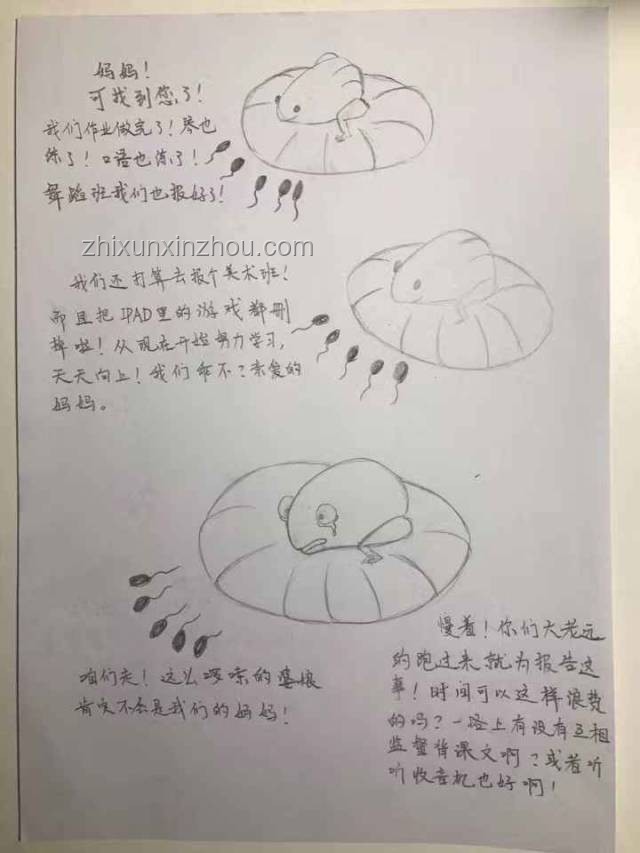 妈妈！
可找到您了！
我们作业做完了！琴也
练了！口语也练了！
舞蹈班我们也报好了！
zhixunxinzhou.com
我们还打算去报个美术班！
而且把IPAD里的游戏都删
掉啦！从现在开始努力学习，
天天向上！我们乖不？亲爱的
妈妈。
慢着！你们大老远
的跑过来就为报告这
事！时间可以这样浪费
的吗？一路上有没有互相
监督背课文啊？或者听
听收音机也好啊！
咱们走！这么啰嗦的婆娘
肯定不会是我们的妈妈！